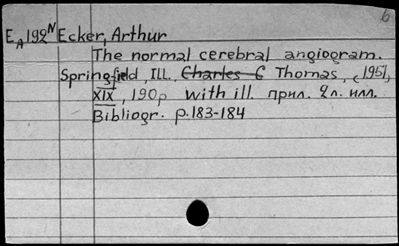 6
E_A192^N Ecker, Arthur
The normal cerebral angiogram.
Springfield, Ill. Charles C Thomas, c 1951,
XIX, 190p with ill. прил. 2л. илл.
Bibliogr. p.183-184